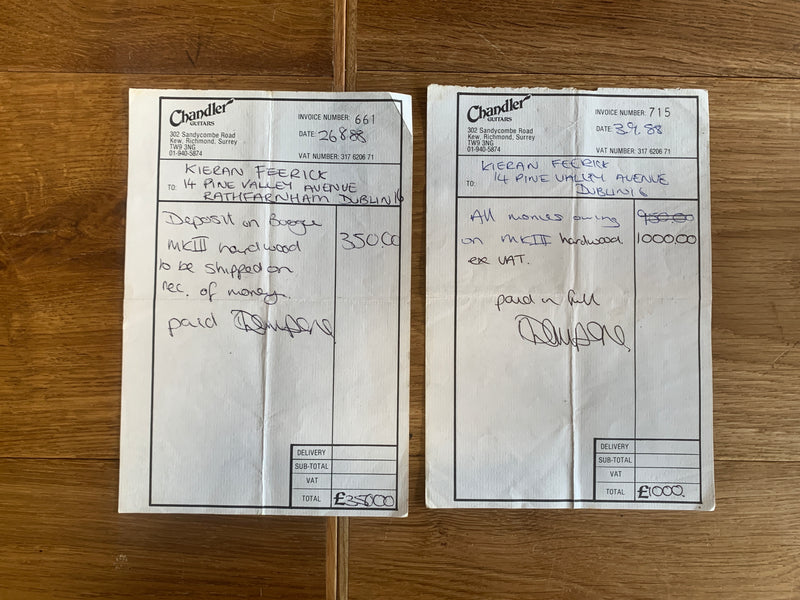 Chandler
GUITARS
302 Sandycombe Road
Kew, Richmond, Surrey
TW9 3NG
01-940-5874
INVOICE NUMBER: 661
DATE: 26 8 88
VAT NUMBER: 317 6206 71
TO: KIERAN FEERICK
14 PINE VALLEY AVENUE
RATHFARNHAM DUBLIN 16
Deposit on Boogie
MKIII hardwood 350 00
to be shipped on
rec. of money.
paid
DELIVERY
SUB-TOTAL
VAT
TOTAL £350 00
Chandler
GUITARS
302 Sandycombe Road
Kew, Richmond, Surrey
TW9 3NG
01-940-5874
INVOICE NUMBER: 715
DATE: 3.9.88
VAT NUMBER: 317 6206 71
TO: KIERAN FEERICK
14 PINE VALLEY AVENUE
DUBLIN 16
All monies owing 950.00
on MKIII hardwood 1000.00
ex VAT.
paid in full
DELIVERY
SUB-TOTAL
VAT
TOTAL £1000.